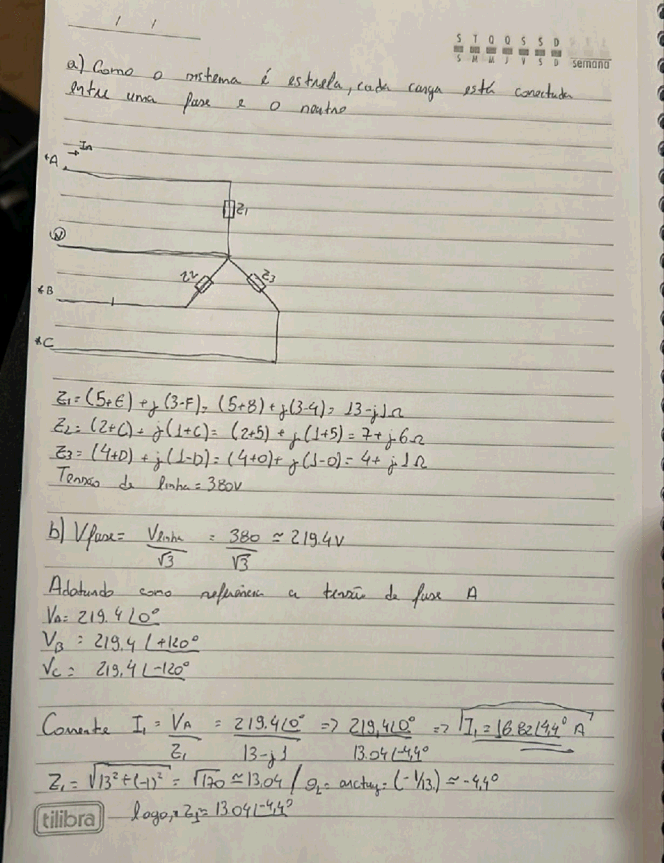 / /
S T Q Q S S D
S M M J V S D semana
a) Como o sistema é estrela, cada carga está conectada
entre uma fase e o neutro
*A → In
Z1
N
Z2 Z3
*B
*C
Z1 = (5+E) + j(3-F) = (5+8) + j(3-4) = 13-j1Ω
Z2 = (2+C) + j(1+C) = (2+5) + j(1+5) = 7+j6Ω
Z3 = (4+D) + j(1-D) = (4+0) + j(1-0) = 4+j1Ω
Tensão de linha = 380V
b) Vfase = Vlinha/√3 = 380/√3 ≃ 219.4V
Adotando como referência a tensão de fase A
VA = 219.4∠0°
VB = 219.4∠+120°
VC = 219,4∠-120°
Corrente I1 = VA/Z1 = 219.4∠0°/13-j1 => 219,4∠0°/13.04∠-4,4° => I1 = 16.82∠4,4° A
Z1 = √13²+(-1)² = √170 ≃ 13.04 / θ1 = arctg = (-1/13) ≃ -4,4°
logo, Z1 = 13.04∠-4,4°
tilibra